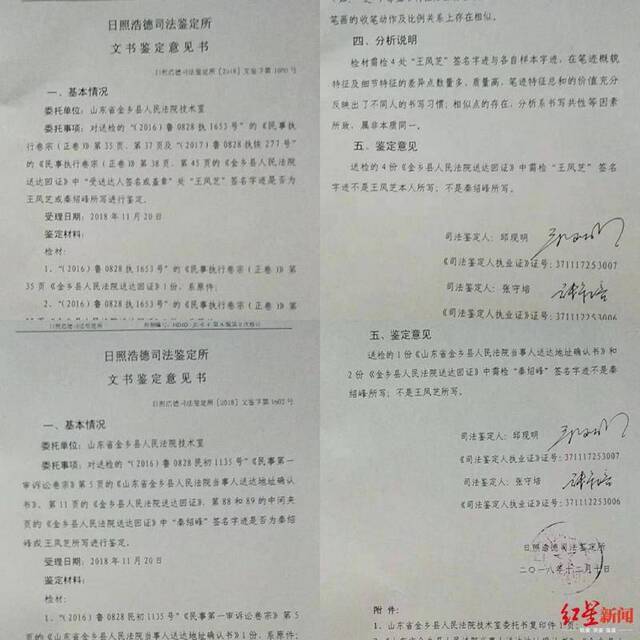 日照浩德司法鉴定所
文书鉴定意见书
日照浩德司法鉴定所[2018]文鉴字第1600号
一、基本情况
委托单位：山东省金乡县人民法院技术室
委托事项：对送检的“(2016)鲁0828执1653号”的《民事执
行卷宗(正卷)》第35页、第37页及“(2017)鲁0828执恢277号”
的《民事执行卷宗(正卷)》第38页、第45页的《金乡县人民法院
送达回证》中“受送达人签名或盖章”处“王凤芝”签名字迹是否为
王凤芝或秦绍峰所写进行鉴定。
受理日期：2018年11月20日
鉴定材料：
检材：
1、“(2016)鲁0828执1653号”的《民事执行卷宗(正卷)》第
35页《金乡县人民法院送达回证》1份，系原件；
2、“(2016)鲁0828执1653号”的《民事执行卷宗(正卷)》第
笔画的收笔动作及比例关系上存在相似。
四、分析说明
检材需检4处“王凤芝”签名字迹与各自样本字迹，在笔迹概貌
特征及细节特征的差异点数量多，质量高，笔迹特征总和的价值充分
反映出了不同人的书写习惯；相似点的存在，分析系书写共性等因素
所放，属非本质同一。
五、鉴定意见
送检的4份《金乡县人民法院送达回证》中需检“王凤芝”签名
字迹不是王凤芝本人所写；不是秦绍峰所写。
司法鉴定人：邱现明
《司法鉴定人执业证》证号：371117253007
司法鉴定人：张守培
《司法鉴定人执业证》证号：371112253006
日照浩德司法鉴定所
日照浩德司法鉴定所
文书鉴定意见书
日照浩德司法鉴定所[2018]文鉴字第1602号
一、基本情况
委托单位：山东省金乡县人民法院技术室
委托事项：对送检的“(2016)鲁0828民初1135号”《民事第一
审诉讼卷宗》第5页的《山东省金乡县人民法院当事人送达地址确认
书》、第11页的《金乡县人民法院送达回证》、第88和89的中间夹
页的《金乡县人民法院送达回证》中“秦绍峰”签名字迹是否为秦绍
峰或王凤芝所写进行鉴定。
受理日期：2018年11月20日
鉴定材料：
检材：
1、“(2016)鲁0828民初1135号”《民事第一审诉讼卷宗》第5
页的《山东省金乡县人民法院当事人送达地址确认书》1份，系原件；
五、鉴定意见
送检的1份《山东省金乡县人民法院当事人送达地址确认书》和
2份《金乡县人民法院送达回证》中需检“秦绍峰”签名字迹不是秦
绍峰所写；不是王凤芝所写。
司法鉴定人：邱现明
《司法鉴定人执业证》证号：371117253007
司法鉴定人：张守培
《司法鉴定人执业证》证号：371112253006
日照浩德司法鉴定所
二〇一八年十二月十日
附件：
1、山东省金乡县人民法院技术室委托书复印件1页；
红星新闻